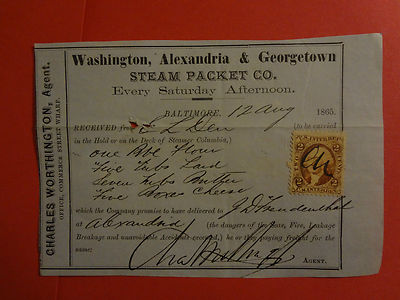 Washington, Alexandria & Georgetown
STEAM PACKET CO.
Every Saturday Afternoon.
BALTIMORE, 12 Aug 1865.
RECEIVED from (to be carried
in the Hold or on the Deck of Steamer Columbia,)
One Bbl Flour
Five Tubs Lard
Seven Tubs Butter
Five Boxes Cheese
which the Company promise to have delivered to
at Alexandria (the dangers of the Fire, Leakage
Breakage and unavoidable Accidents excepted,) he or they paying freight for the
same:
AGENT.
CHARLES WORTHINGTON, Agent.
OFFICE, COMMERCE STREET WHARF.
2 2